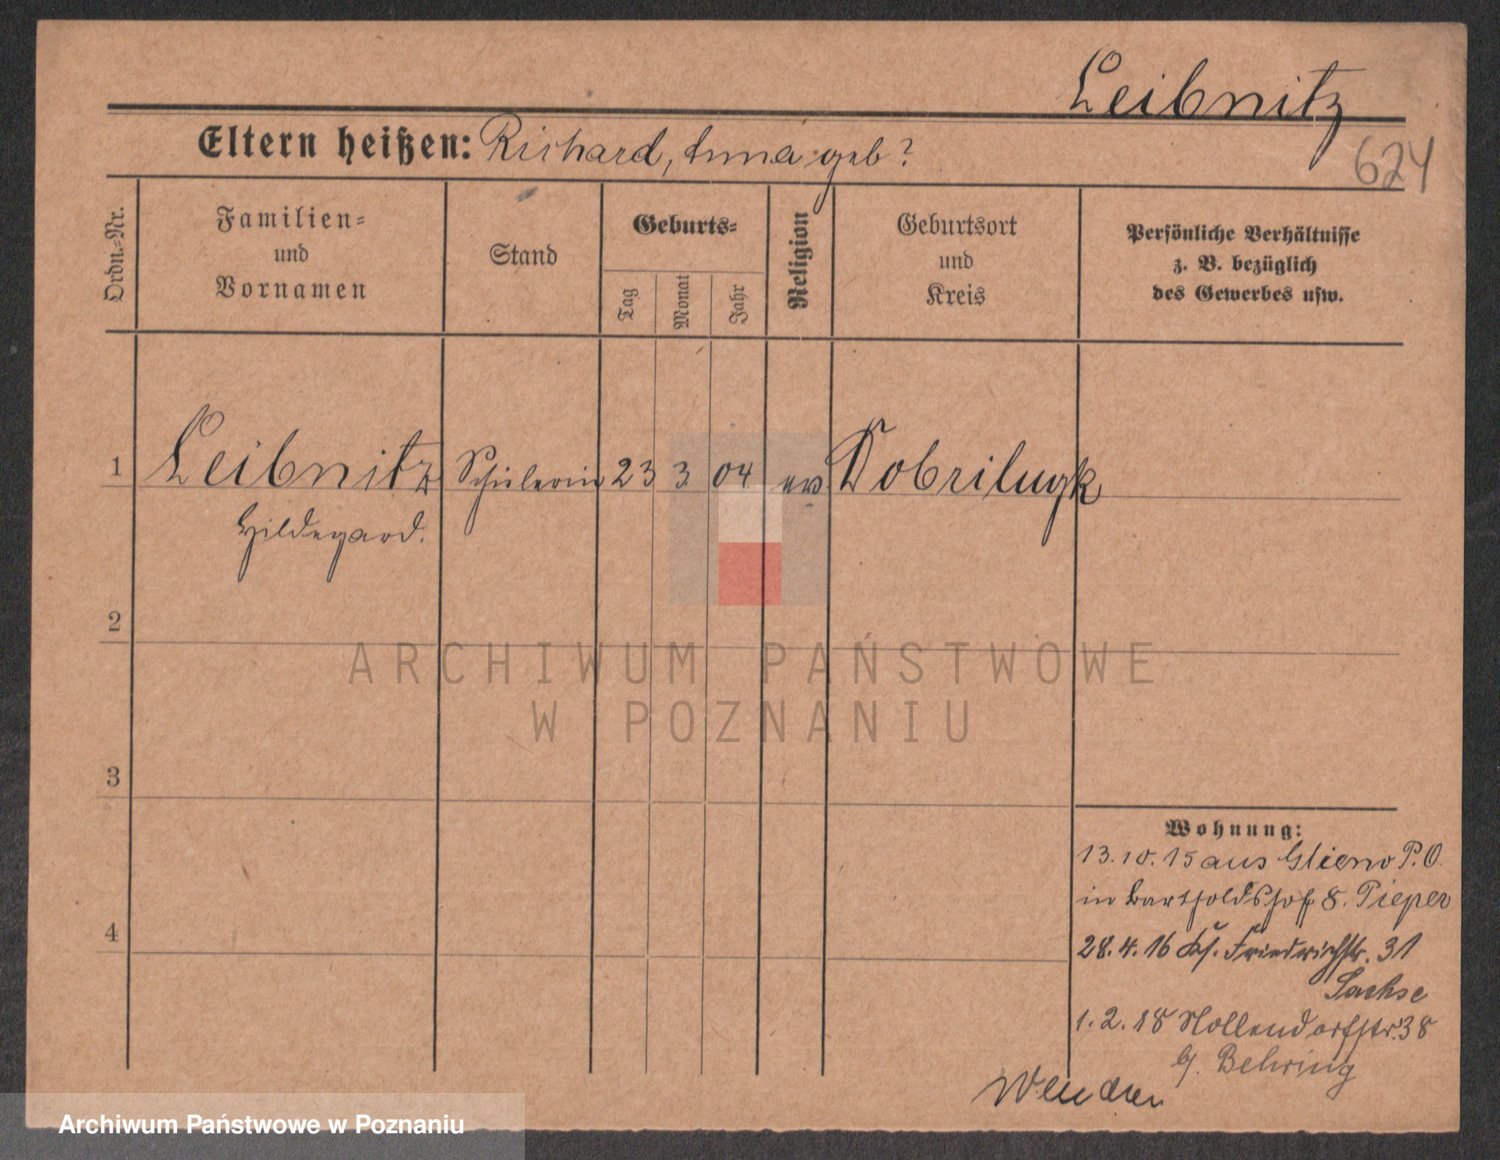 Leibnitz
Eltern heißen: Richard, Anna geb?
624
Ordn.=Nr.
Familien=
und
Vornamen
Stand
Geburts=
Tag
Monat
Jahr
Religion
Geburtsort
und
Kreis
Persönliche Verhältnisse
z. B. bezüglich
des Gewerbes usw.
1 Leibnitz Schülerin 23 3 04 ev Dobrilugk
Hildegard.
2
ARCHIWUM PAŃSTWOWE
W POZNANIU
3
Wohnung:
13.10.15 aus Glieno P.O.
in Bartholdshof 8. Pieper
4
28.4.16 Friedrichstr. 31
Sachse
1.2.18 Nollendorfstr. 38
b/. Behring
Wenden
Archiwum Państwowe w Poznaniu